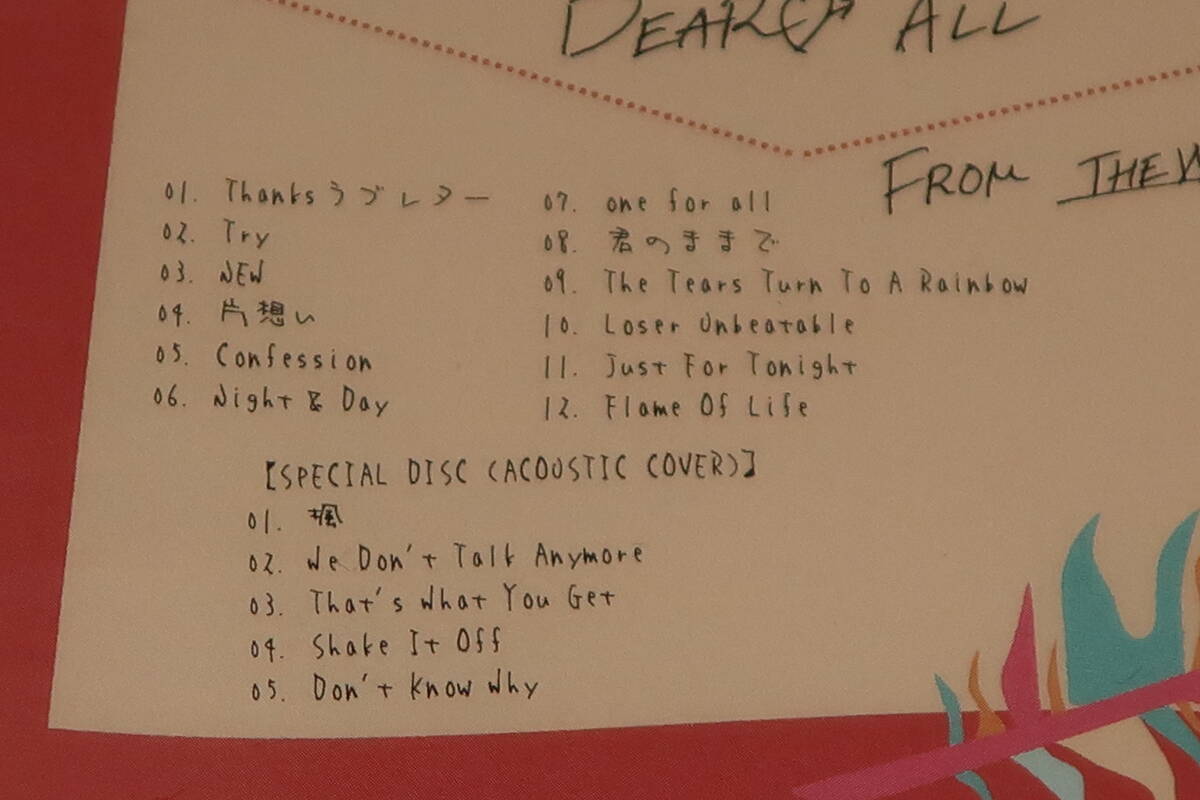 DEAR ALL
FROM THEW
01. Thanksラブレター
02. Try
03. NEW
04. 片想い
05. Confession
06. Night & Day
07. one for all
08. 君のままで
09. The Tears Turn To A Rainbow
10. Loser Unbeatable
11. Just For Tonight
12. Flame Of Life
【SPECIAL DISC (ACOUSTIC COVER)】
01. 楓
02. We Don't Talk Anymore
03. That's What You Get
04. Shake It Off
05. Don't Know Why